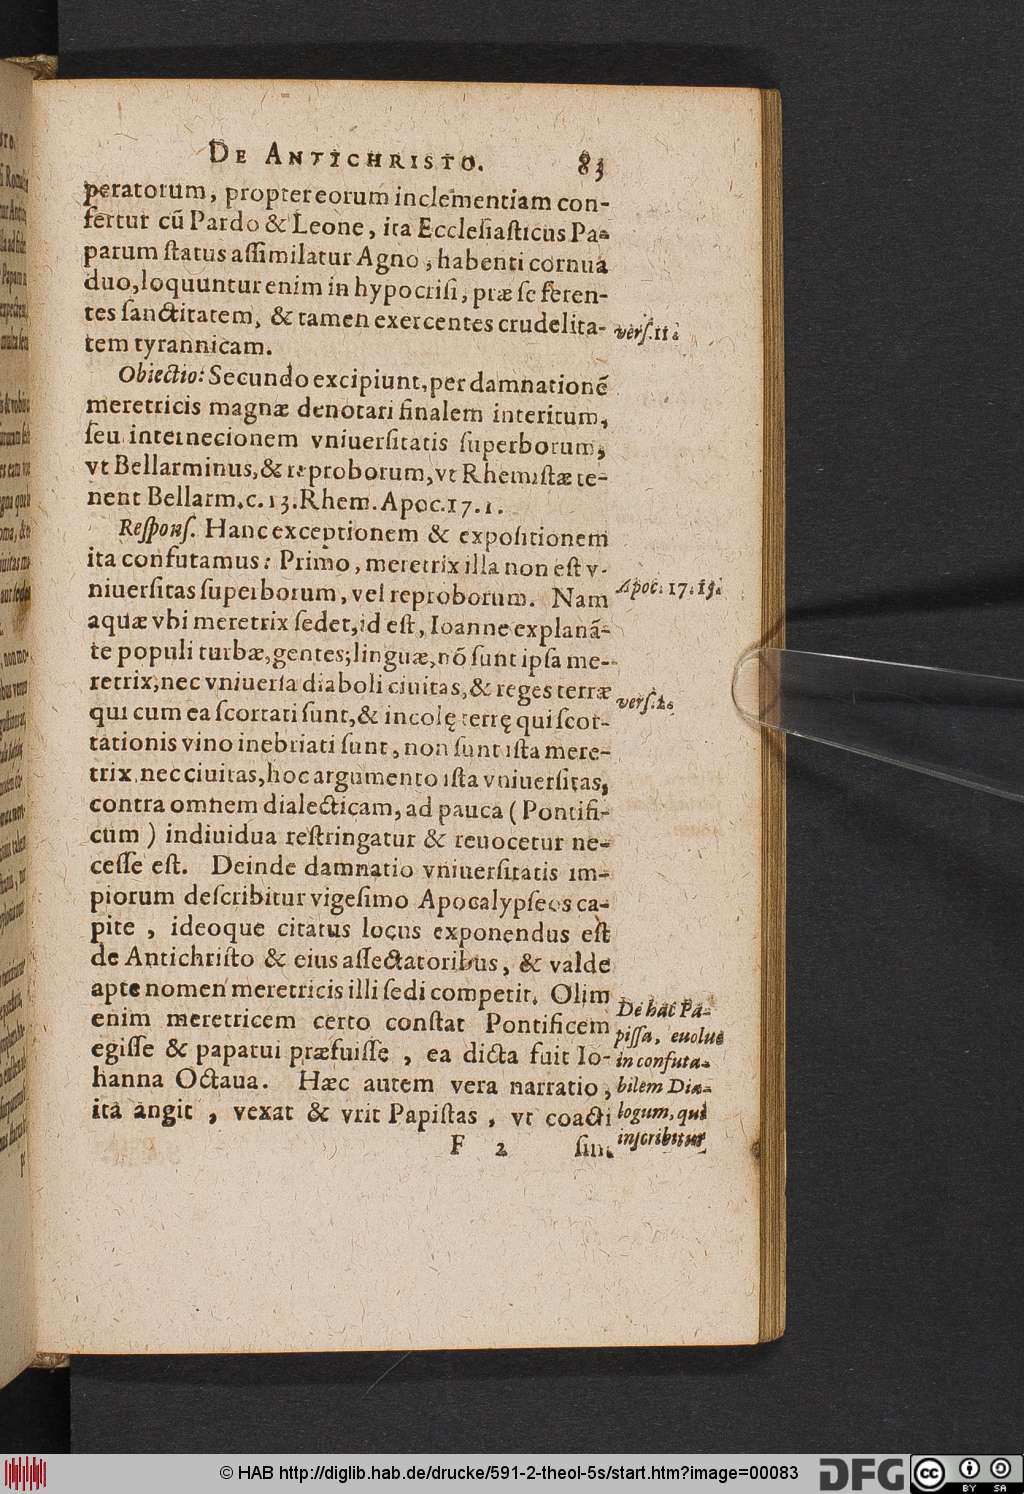 DE ANTICHRISTO. 83
peratorum, propter eorum inclementiam con-
fertur cū Pardo & Leone, ita Ecclesiasticus Pa-
parum status assimilatur Agno, habenti cornua
duo, loquuntur enim in hypocrisi, præ se feren-
tes sanctitatem, & tamen exercentes crudelita-
tem tyrannicam.
vers. 11.
Obiectio: Secundo excipiunt, per damnationē
meretricis magnæ denotari finalem interitum,
seu internecionem vniuersitatis superborum,
vt Bellarminus, & reproborum, vt Rhemistæ te-
nent Bellarm. c. 13. Rhem. Apoc. 17. 1.
Respons. Hanc exceptionem & expositionem
ita confutamus: Primo, meretrix illa non est v-
niuersitas superborum, vel reproborum. Nam
Apoc. 17. 15.
aquæ vbi meretrix sedet, id est, Ioanne explanā-
te populi turbæ, gentes; linguæ, nō sunt ipsa me-
retrix, nec vniuersa diaboli ciuitas, & reges terræ
vers. 2.
qui cum ea scortati sunt, & incolę terrę qui scor-
tationis vino inebriati sunt, non sunt ista mere-
trix, nec ciuitas, hoc argumento ista vniuersitas,
contra omnem dialecticam, ad pauca (Pontifi-
cum) indiuidua restringatur & reuocetur ne-
cesse est. Deinde damnatio vniuersitatis im-
piorum describitur vigesimo Apocalypseos ca-
pite, ideoque citatus locus exponendus est
de Antichristo & eius assectatoribus, & valde
apte nomen meretricis illi sedi competit. Olim
enim meretricem certo constat Pontificem
egisse & papatui præfuisse, ea dicta fuit Io-
hanna Octaua. Hæc autem vera narratio,
ita angit, vexat & vrit Papistas, vt coacti
De hac Pa-
pissa, euolue
in confuta-
bilem Dia-
logum, qui
inscribitur
F 2 sint
© HAB http://diglib.hab.de/drucke/591-2-theol-5s/start.htm?image=00083
DFG
cc
BY SA